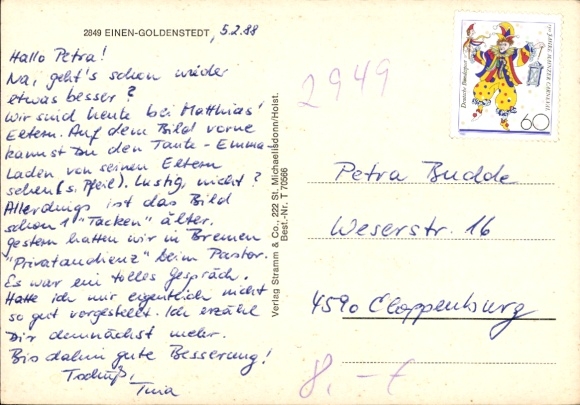 2849 EINEN-GOLDENSTEDT, 5.2.88
Hallo Petra!
Na, geht's schon wieder
etwas besser?
Wir sind heute bei Matthias'
Eltern. Auf dem Bild vorne
kannst Du den Tante-Emma-
Laden von seinen Eltern
sehen (s. Pfeil). Lustig, nicht?
Allerdings ist das Bild
schon 1 "Tacken" älter.
Gestern hatten wir in Bremen
"Privataudienz" beim Pastor.
Es war ein tolles Gespräch.
Hatte ich mir eigentlich nicht
so gut vorgestellt. Ich erzähl
Dir demnächst mehr.
Bis dahin gute Besserung!
Tschüß,
Tina
Verlag Stramm & Co., 222 St. Michaelisdonn/Holst.
Best.-Nr. T 70566
2949
Deutsche Bundespost
150 JAHRE MAINZER CARNEVAL
60
Petra Budde
Weserstr. 16
4590 Cloppenburg
8,-€